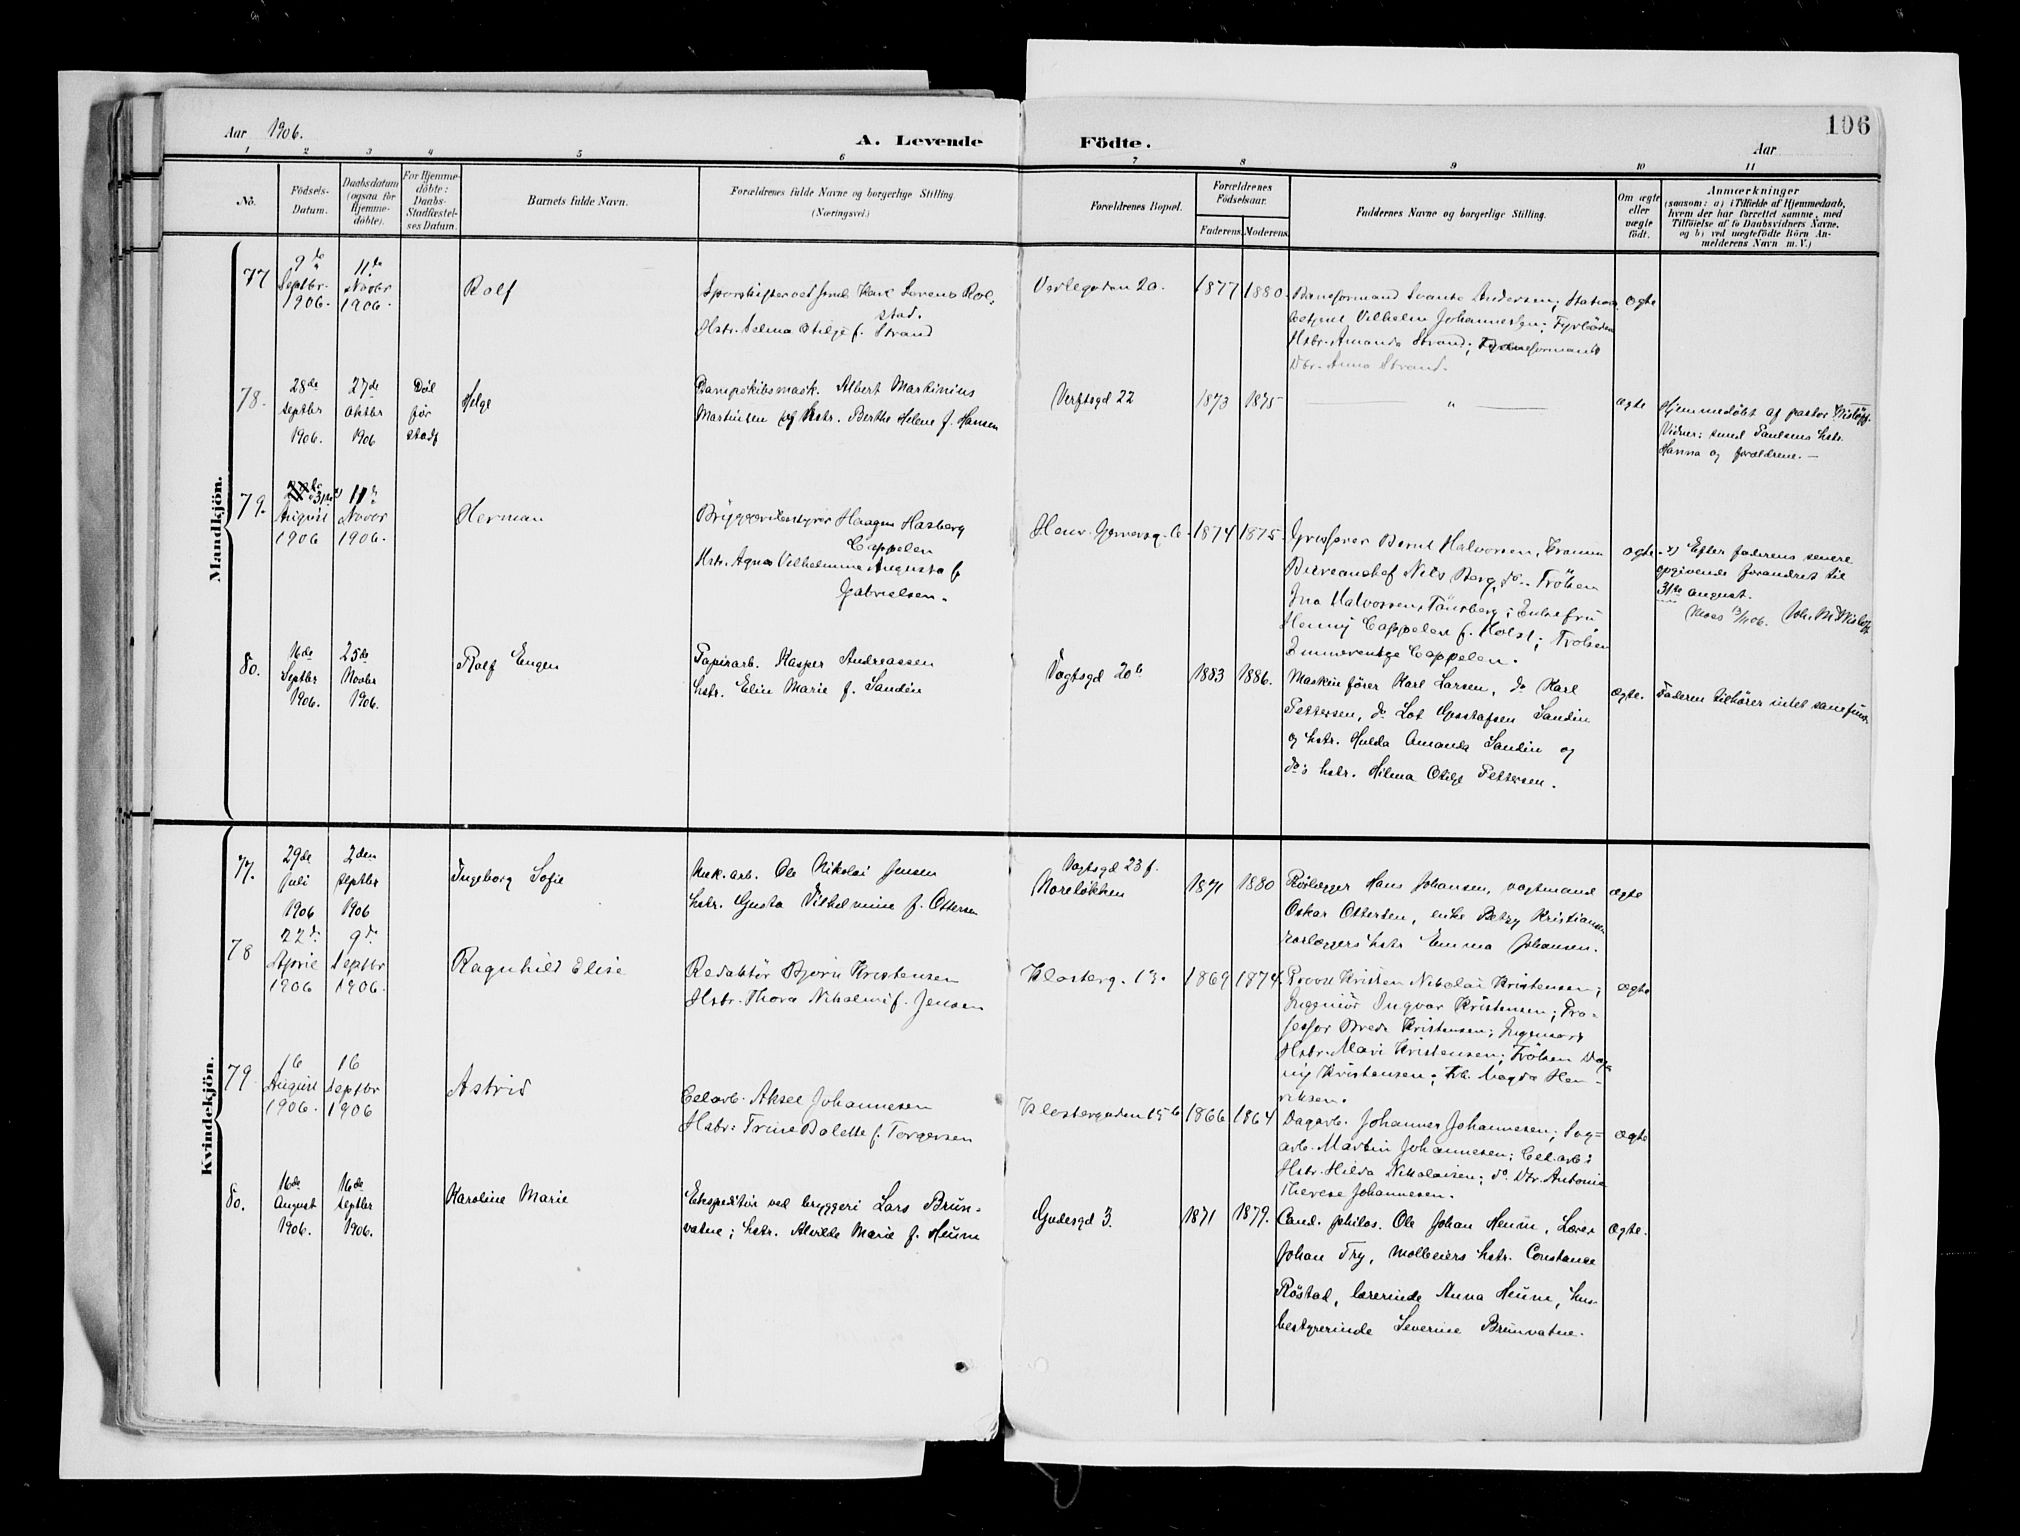 Aar 1906.
A. Levende Födte.
106
Aar
1 2 3 4 5 6 7 8 9 10 11
No.
Födsels-
Datum.
Daabsdatum
(ogsaa för
Hjemme-
döbte).
For Hjemme-
döbte:
Daabs-
Stadfæstel-
ses Datum.
Barnets fulde Navn.
Forældrenes fulde Navne og borgerlige Stilling
(Næringsvei.)
Forældrenes Bopæl.
Forældrenes
Födselsaar.
Faderens. Moderens.
Faddernes Navne og borgerlige Stilling.
Om ægte
eller
uægte
födt.
Anmærkninger
(saasom: a) i Tilfælde af Hjemmedaab,
hvem der har forrettet samme, med
Tilföielse af to Daabsvidners Navne,
og b) ved uægtefödte Börn An-
melderens Navn m. V.)
Mandkjön.
77
9de
Septbr.
1906.
11te
Novbr
1906.
Rolf
Sporskifter Karl Lorens Rol-
stad.
Hstr. Selma Otilje f. Strand
Værlegaden 20.
1877 1880.
Baneformand Svante Andersen; Stations-
betjent Vilhelm Johannesen; Fyrböder
Hstr. Amanda Strand; Baneformands
Dtr. Anna Strand.
ægte
78.
28de
septbr
1906.
27de
oktbr
1906
Döl
för
stadf
Helge
Dampskibsmask. Albert Martinius
Martinsen og hstr. Berthe Helene f. Hansen
Verftsgd 22
1873 1875
"
ægte
Hjemmedöbt af pastor Wislöff.
Vidner: smed Paulsens hstr.
Hanna og forældrene. —
79.
31te x)
August
1906
11te
Novbr
1906.
Herman
Bryggeribestyrer Haagen Hasberg
Cappelen
Hstr. Agnes Vilhelmine Augusta f.
Gabrielsen.
Henr. Gernersg. 6.
1874 1875.
Grosserer Bernt Halvorsen, Drammen
Bureauchef Nils Berg, do. Fröken
Ina Halvorsen, Tönsberg; Enkefru
Henny Cappelen f. Holst; Fröken
Cappelen.
ægte
x) Efter faderens senere
opgivende forandret til
31te august.
Moss 13/11 06. Joh. M. Wislöff.
80.
16de
Septbr
1906.
25de
Novbr
1906.
Rolf Eugen
Papirarb. Kasper Andreassen
hstr. Elin Marie f. Sandin
Vogtsgd 20b
1883 1886.
Maskinförer Karl Larsen, do Karl
Pettersen, do Lot Gustafsen Sandin
og hstr. Hulda Amanda Sandin og
do's hstr. Hilma Otilje Pettersen.
ægte.
Faderen tilhörer intet samfund.
Kvindekjön.
77.
29de
juli
1906
2den
septbr
1906
Ingeborg Sofie
Mek. arb. Ole Nikolai Jensen
hstr. Gusta Vilhelmine f. Ottersen
Vogtsgd 23 f.
Norelökken
1871 1880
Rörlægger Hans Johansen, vagtmand
Oskar Ottersen, enke Betzy Kristiansen
rörlæggers hstr Emma Johansen.
ægte
78
22de
April
1906
9de
Septbr
1906.
Ragnhild Elise
Redaktör Björn Kristensen
Hstr. Thora f. Jensen
Klosterg. 13.
1869 1874.
Provst Kristen Nikolai Kristensen;
Ingeniör Ingvar Kristensen; Pro-
fessor Brede Kristensen; Ingeniörs
Hstr. Mari Kristensen; Fröken Dag-
ny Kristensen; Frk. Magda Hen-
riksen.
ægte
79
16
August
1906.
16
Septbr
1906
Astrid
Cel. arb. Aksel Johannesen
Hstr: Trine Bolette f. Torgersen
Klostergaden 15 b
1866 1864
Dagarb. Johannes Johannesen; Sag-
arb. Martin Johannesen; Cel. arb.s
Hstr. Hilda Nikolaisen; do. Dtr. Antonie
Therese Johannesen.
ægte
80.
16de
August
1906.
16de
septbr
1906.
Karoline Marie
Ekspeditör ved bryggeri Lars Brun-
vatne; hstr. Alvilde Marie f. Heum
Gudesgd 3.
1871 1879.
Cand. philos. Ole Johan Heum, Lærer
Johan Try, Molbeiers hstr. Constance
Röstad, lærerinde Anna Heum, hus-
bestyrerinde Severine Brunvatne.
ægte.